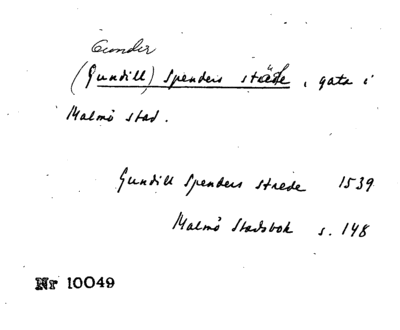 Gunder
(Gundill) Spenders stæde, gata i
Malmö stad.
Gundill Spenders strede 1539
Malmö Stadsbok s. 148
Nr 10049